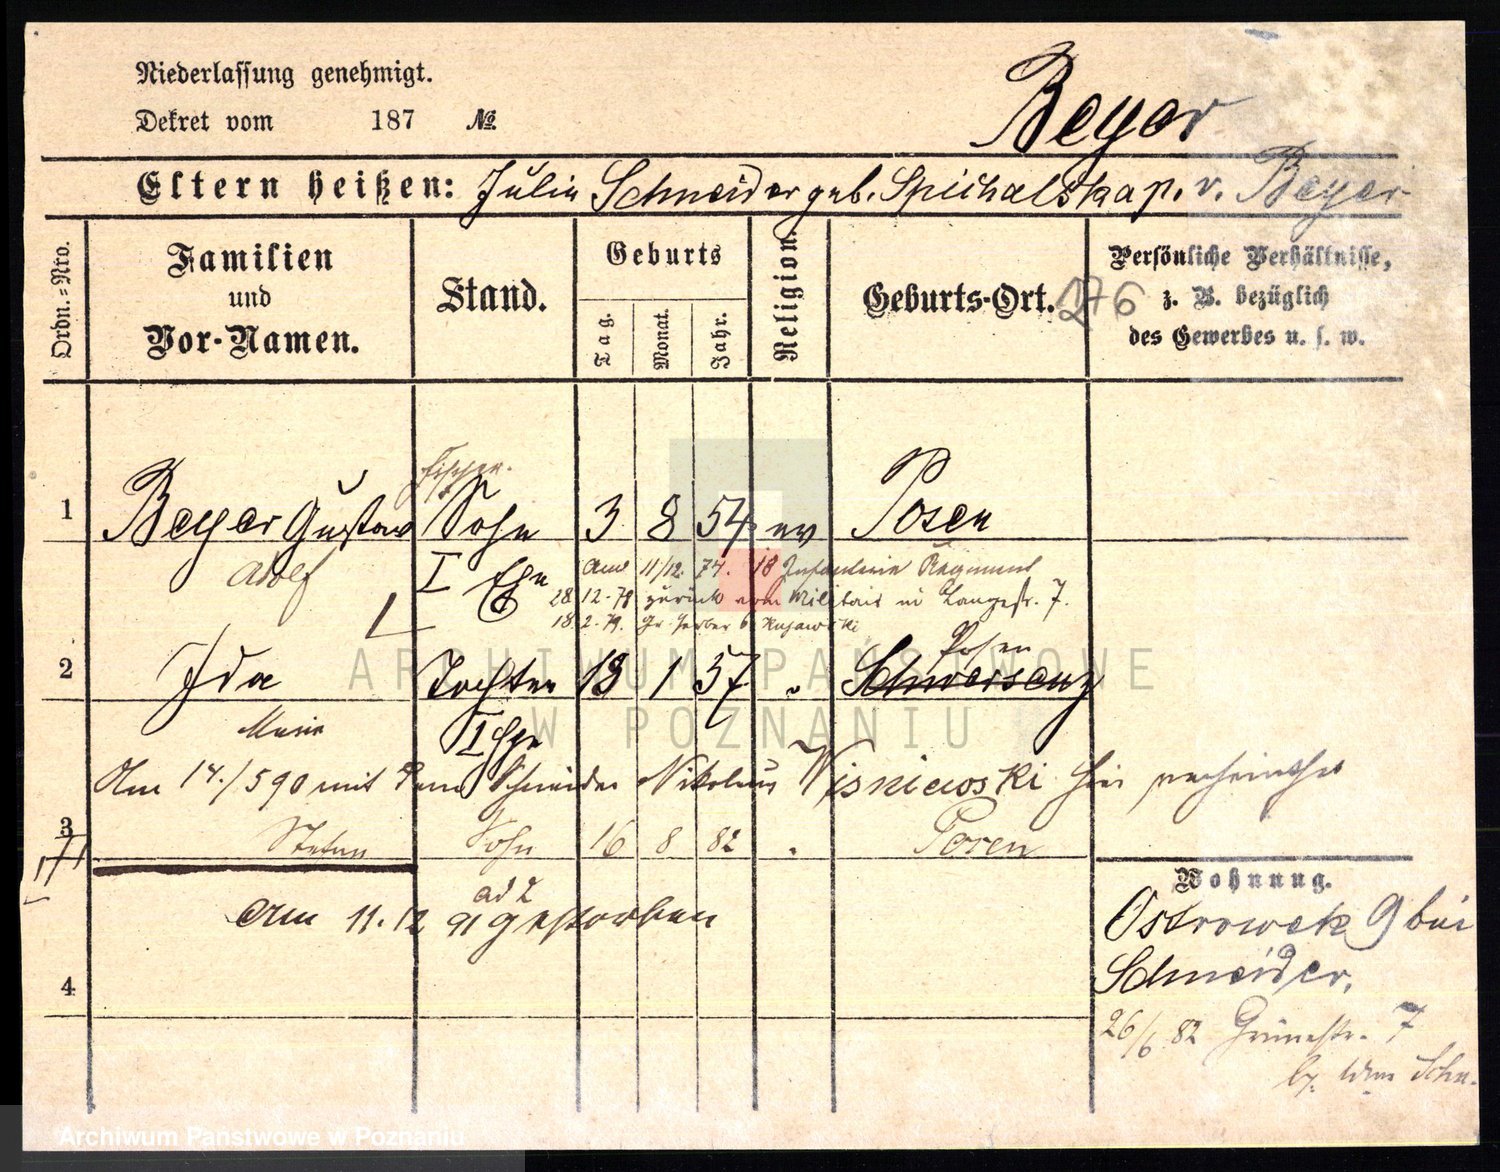 Niederlassung genehmigt.
Dekret vom 187 №
Beyer
Eltern heißen: Julie Schneider geb. Spichalska p. v. Beyer
Ordn.-Nro.
Familien
und
Vor-Namen.
Stand.
Geburts
Tag.
Monat.
Jahr.
Religion.
Geburts-Ort.
276
Persönliche Verhältnisse,
z. B. bezüglich
des Gewerbes u. s. w.
1 Beyer Gustav Sohn 3 8 54 ev Posen
Adolf I Ehe 11/12. 74. 18 Infanterie Regiment
28 12 79 zurück vom Militair in Langestr. 7.
18. 2. 79. Gr. Gerber 6 Kujawski
Posen
2 Ida Tochter 13 1 57 " Schwersenz
Marie I Ehe
Am 14./5 90 mit dem Schneider Nikolaus Wisniewski hier verheirathet
3 Stefan Sohn 16 8 82 " Posen
ad 2
am 11. 12 91 gestorben
4
Wohnung.
Ostrowek 9 bei
Schneider.
26/6 82 Grünestr. 7
ARCHIWUM PAŃSTWOWE
W POZNANIU
Archiwum Państwowe w Poznaniu